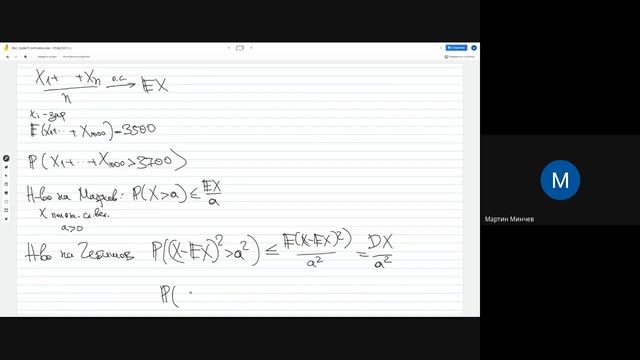 X₁+⋯+Xₙ / n п.с.→ 𝔼X
Xᵢ-зар
𝔼(X₁+⋯+X₁₀₀₀)=3500
ℙ(X₁+⋯+X₁₀₀₀>3700)
Н-во на Марков: ℙ(X>a) ≤ 𝔼X/a
X
a>0
Н-во на Чебишов ℙ((X-𝔼X)²>a²) ≤ 𝔼(X-𝔼X)²)/a² = DX/a²
ℙ(
M
Мартин Минчев